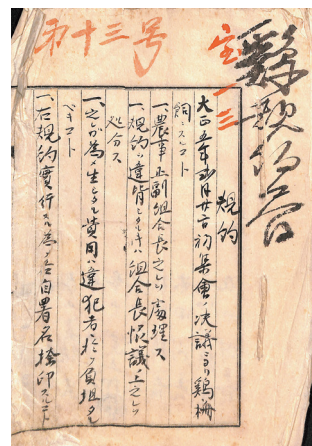 鶏規約書
宝一三
第十三号
規約
大正五年　月廿日初集會ノ決議ニヨリ鶏柵
飼ニスルコト
一、農事正副組合長之レヲ處理ス
一、規約ニ違背シタルトキハ組合長協議上之レヲ
処分ス
一、之レガ為メ生シタル費用ハ違犯者ニ於テ負担スル
ベキコト
一、右規約實行スル為メ各自署名捺印スルコト